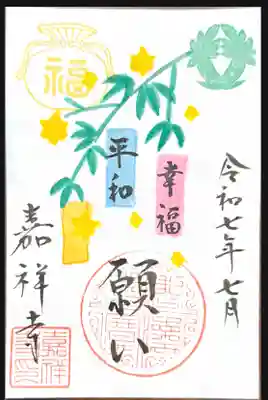 福
令和七年七月
幸福
平和
願い
嘉祥寺